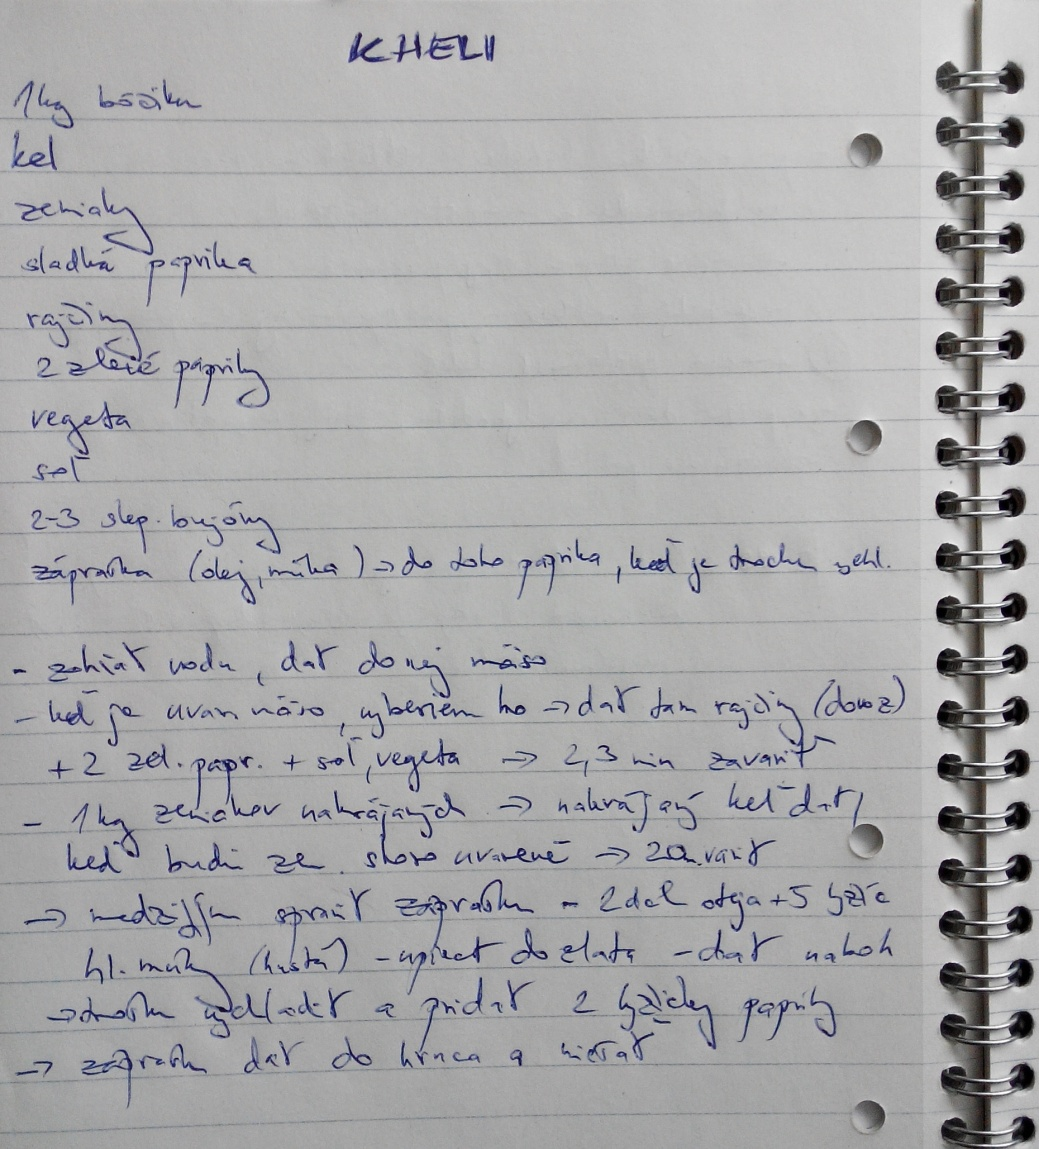 KHELI
1kg bôčiku
kel
zemiaky
sladká paprika
rajčiny
2 zlené papriky
vegeta
soľ
2-3 slep. bujóny
zápražka (olej, múka) → do toho paprika, keď je trochu vychl.
- zohriať vodu, dať do nej mäso
- keď je uvar. mäso, vyberiem ho → dať tam rajčiny (doraz)
+ 2 zel. papr. + soľ, vegeta → 2,3 min zavariť
- 1kg zemiakov nakrájaných → nakrájaný kel dať,
keď budú ze. skoro uvarené → 20m. variť
→ medzitým spraviť zápražku - 2dcl oleja + 5 lyžíc
hl. múky (hustá) - upiecť do zlata - dať nabok
→ trošku vychladiť a pridať 2 lyžičky papriky
→ zápražku dať do hrnca a miešať